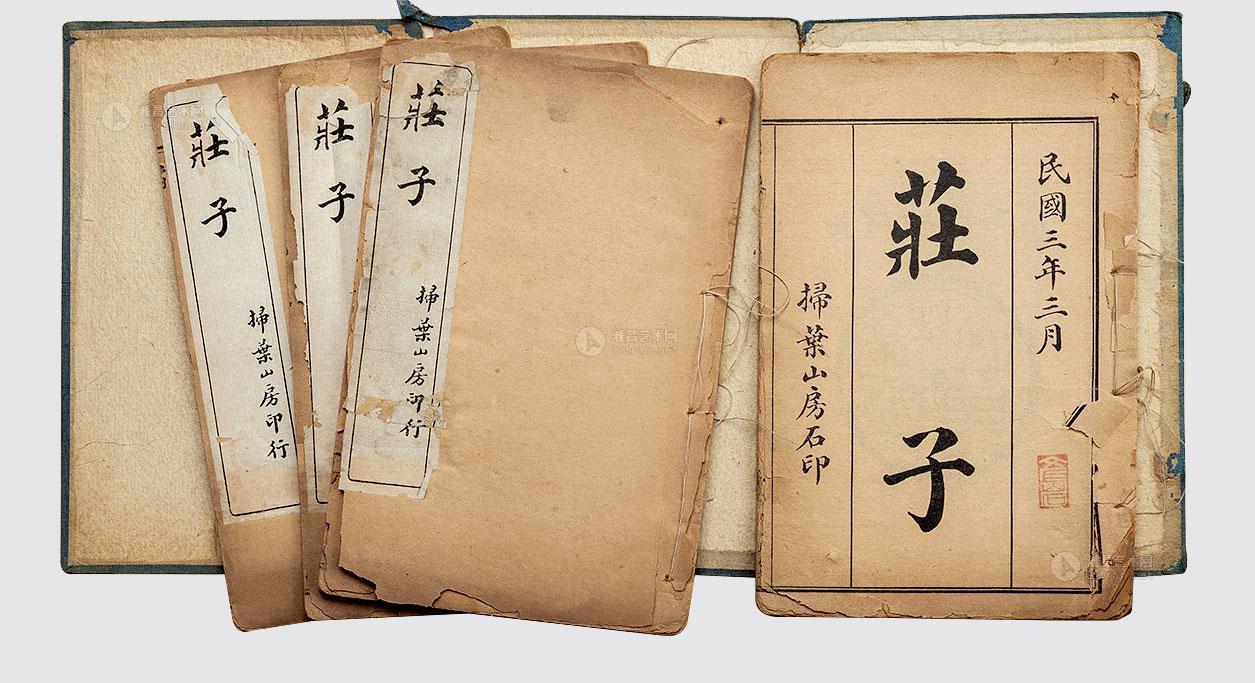 莊子
掃葉山房印行
莊子
莊子
掃葉山房印行
民國三年三月
莊子
掃葉山房石印
雅昌艺术网